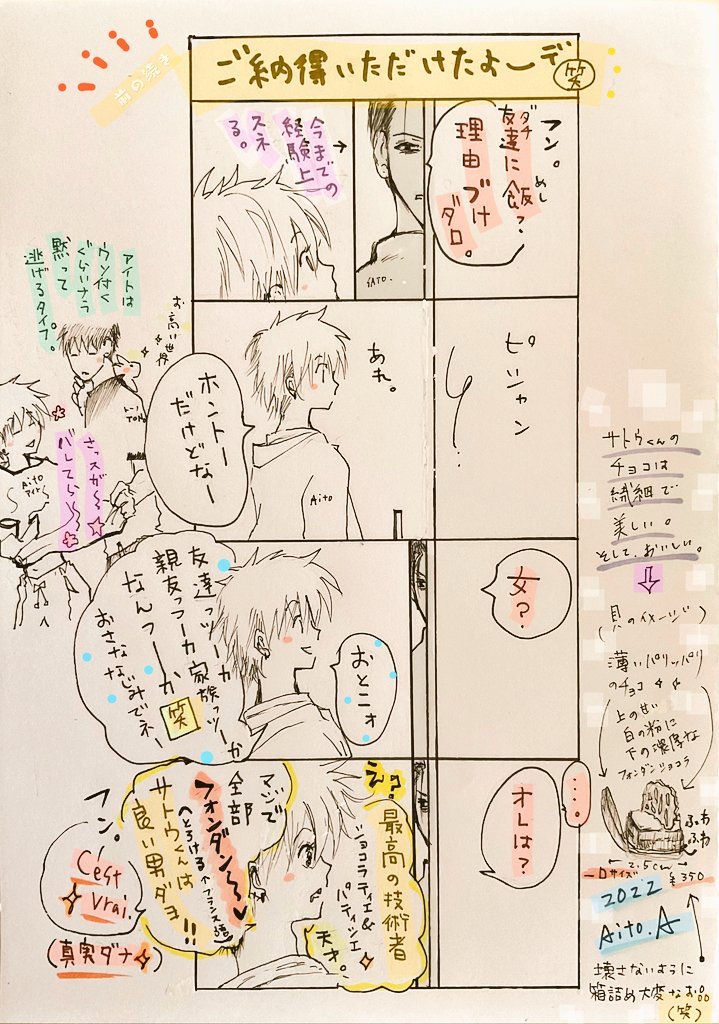 前の続き
ご納得いただけたよーデ
笑
フン。
友達に飯?
ダチ
めし
理由づけ
ダロ。
今までの
経験上
スネ
る。
SATO.
ピシャン
あれ。
ホントー
だけどなー
Aito
アイトは
ウソ付く
ぐらいなら
黙って
逃げるタイプ。
お高い世界
さっスガ〜〜☆
バレてら〜〜☆
Aito
女?
おとこォ
友達っツーカ
親友っつーカ家族っツーか
なんつーか
笑
おさななじみでネー
…。
オレは?
え?
最高の技術者
ショコラティエ&
パティシエ
天才。
マジで
全部
フォンダン〜〜♥
(とろける←フランス語)
サトウくんは
良い男ダヨ!!
フン。
C'est
vrai.
(真実ダナ✦)
サトウくんの
チョコは
繊細で
美しい。
そして、おいしい。
⇩
(貝のイメージ)
薄いパリッパリ
のチョコ
上の甘い
白の粉に
下の濃厚な
フォンダンショコラ
ふわ
ふわ
2.5cm
一口サイズ
¥350
2022
Aito.A
壊さないように
箱詰め大変なお品
(笑)